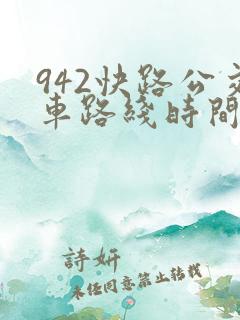 942快路公交
車路綫時間
詩妍
未经同意禁止转载